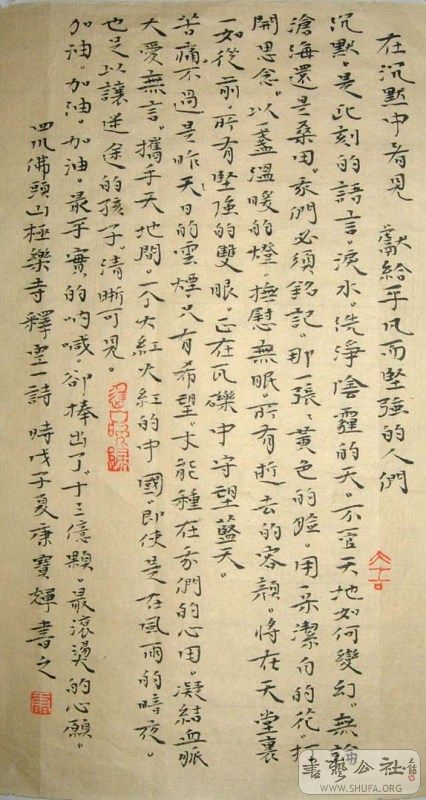 在沉默中看見　獻給平凡而堅強的人們
沉默。是此刻的語言。淚水。洗淨陰霾的天。不管天地如何變幻。無論
滄海還是桑田。我們必須銘記。那一張々黃色的臉。用一朵潔白的花。打
開思念。以一盞溫暖的燈。撫慰無眠。所有逝去的容顏。將在天堂裏
一如從前。所有堅強的雙眼。正在瓦礫中守望藍天。
苦痛。不過是昨天日的雲煙。只有希望。才能種在我們的心田。凝結血脈
大愛無言。攜手天地間。一个大紅大紅的中國。即使是在風雨的暗夜。
也足以讓迷途的孩子。清晰可見。
加油。加油。加油。最平實的吶喊。卻捧出了。十三億顆。最滾燙的心願。
四川佛頭山極樂寺釋空一詩　時戊子夏康寶輝書之
書藝公社
WWW.SHUFA.ORG